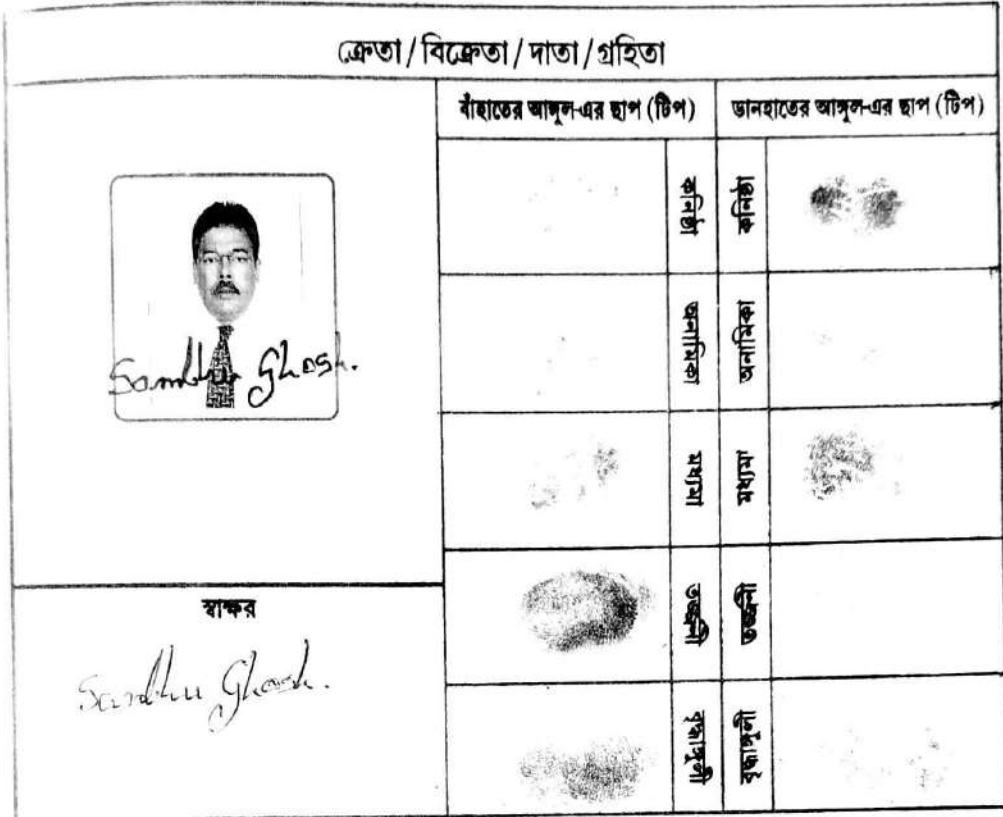 ক্রেতা / বিক্রেতা / দাতা / গ্রহিতা
বাঁহাতের আঙ্গুল-এর ছাপ (টিপ)
ডানহাতের আঙ্গুল-এর ছাপ (টিপ)
কনিষ্ঠা কনিষ্ঠা
অনামিকা অনামিকা
মধ্যমা মধ্যমা
তর্জ্জনী তর্জ্জনী
বৃদ্ধাঙ্গুলী বৃদ্ধাঙ্গুলী
Sandhu Ghosh.
স্বাক্ষর
Sandhu Ghosh.